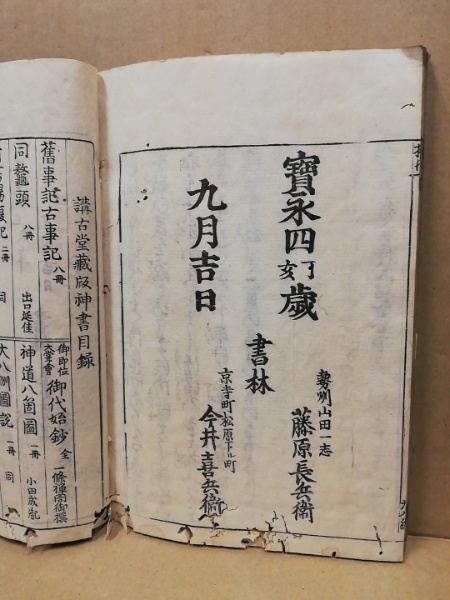 寳永四丁亥歳
九月吉日
書林
勢州山田一志
藤原長兵衛
京寺町松原下ル町
今井喜兵衛
講古堂藏版神書目録
舊事記古事記 八冊
同鼇頭 八冊 出口延佳
御即位
大嘗會
御代始鈔 全 一條禪閤御撰
神道八箇圖 一冊 小田成胤
大八洲圖説 一冊 同
二冊 同